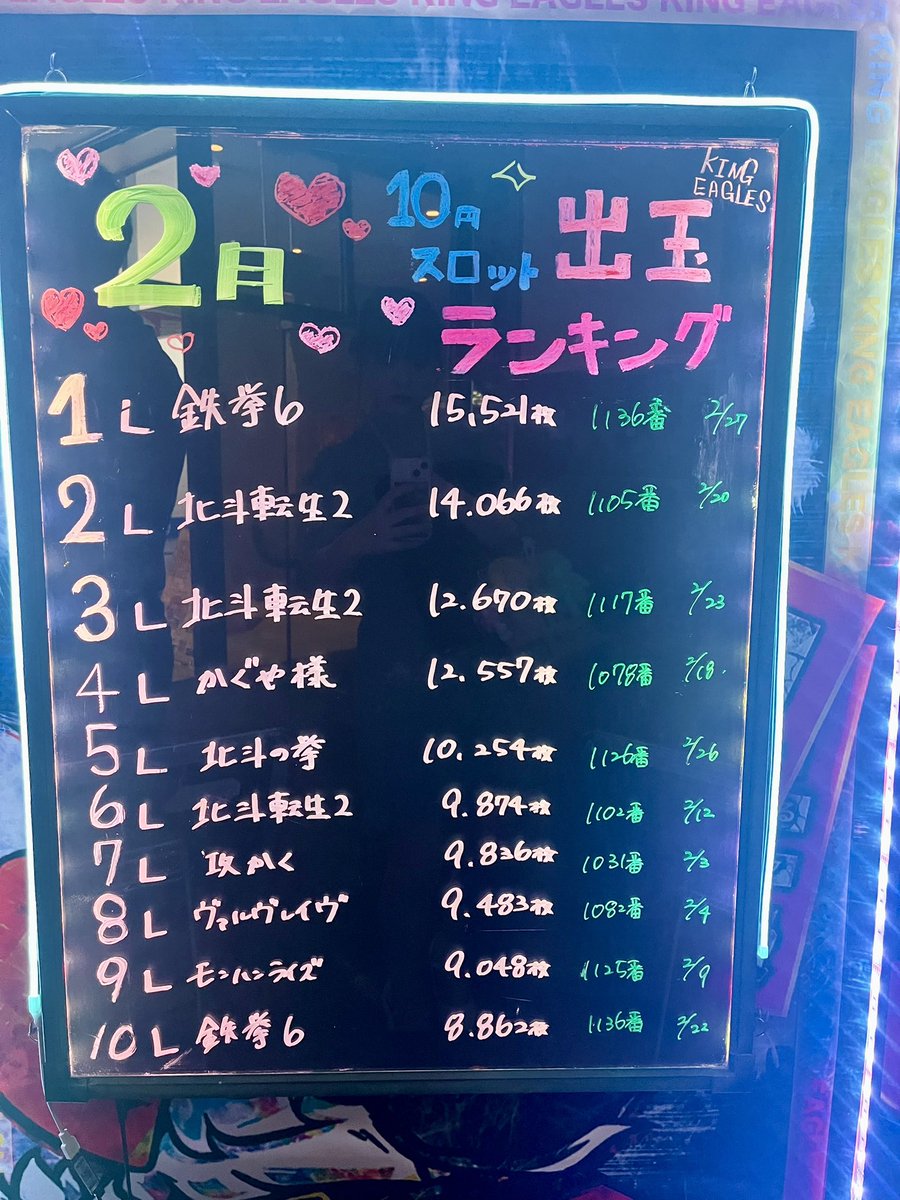 EAGLES KING EAGLES KING EAGLES KING EAGLES KING EA
KING EAGLES
2月
10円
スロット
出玉
ランキング
1 L 鉄拳6 15,521枚 1136番 2/27
2 L 北斗転生2 14.066枚 1105番 2/20
3 L 北斗転生2 12.670枚 1117番 2/23
4 L かぐや様 12.557枚 1078番 2/18.
5 L 北斗の拳 10.254枚 1126番 2/26
6 L 北斗転生2 9.874枚 1102番 2/12
7 L 攻かく 9.836枚 1031番 2/3
8 L ヴァルヴレイヴ 9.483枚 1082番 2/4
9 L モンハンライズ 9.048枚 1125番 2/9
10 L 鉄拳6 8.862枚 1136番 2/22
KING EAGLES KING EAGLES